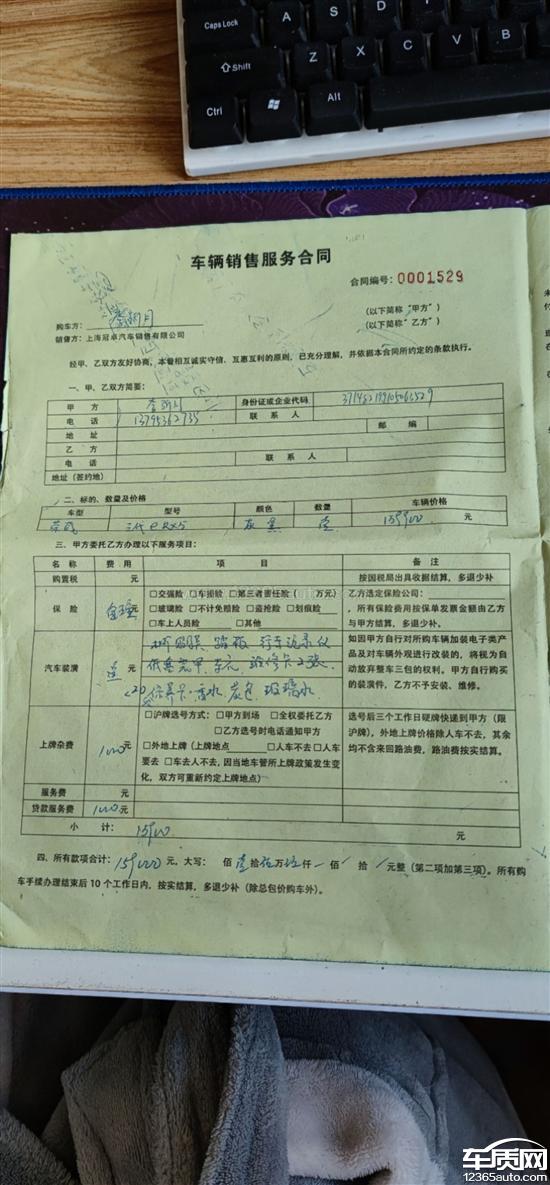 Caps Lock A S D F G
Shift Z X C V B
Ctrl Alt
车辆销售服务合同
合同编号：0001529
购车方： （以下简称“甲方”）
销售方：上海冠卓汽车销售有限公司 （以下简称“乙方”）
经甲、乙双方友好协商，本着相互诚实守信，互惠互利的原则，已充分理解，并依据本合同所约定的条款执行。
一、甲、乙双方简要：
甲 方 身份证或企业代码
电 话 13795362735 联 系 人
地 址 邮 编
乙 方
电 话 联 系 人
地址（签约地）
二、标的、数量及价格
车型 型号 颜色 数量 车辆价格
荣威 三代eRX5 灰 黑 壹 159900 元
三、甲方委托乙方办理以下服务项目：
名 称 费 用 项 目 备 注
购置税 元 按国税局出具收据结算，多退少补
保 险 自理 元 □交强险 □车损险 □第三者责任险（ 万元）
□玻璃险 □不计免赔险 □盗抢险 □划痕险
□车上人员险 □其他
乙方选定保险公司：
，所有保险费用按保单发票金额由乙方
与甲方结算，多退少补。
汽车装潢 送 元 踏板 行车记录仪
维修卡2张、
保养卡、香水、炭包、玻璃水、
如因甲方自行对所购车辆加装电子类产
品及对车辆外观进行改装的，将视为自
动放弃整车三包的权利。甲方自行购买
的装潢件，乙方不予安装、维修。
上牌杂费 1000 元 □沪牌选号方式：□甲方到场 □全权委托乙方
□乙方选号时电话通知甲方
□外地上牌（上牌地点 ）□人车不去 □人车
要去 □车去人不去，因当地车管所上牌政策发生变
化，双方可重新约定上牌地点）
选号后三个工作日硬牌快递到甲方（限
沪牌），外地上牌价格除人车不去，其余
均不含来回路油费，路油费按实结算。
服务费 元
贷款服务费 1000 元
小 计： 元
四、所有款项合计： 元，大写： 佰 壹 拾 伍 万 玖 仟 佰 拾 元整（第二项加第三项）。所有购
车手续办理结束后 10 个工作日内，按实结算，多退少补（除总包价购车外）。
车质网
www.12365auto.com